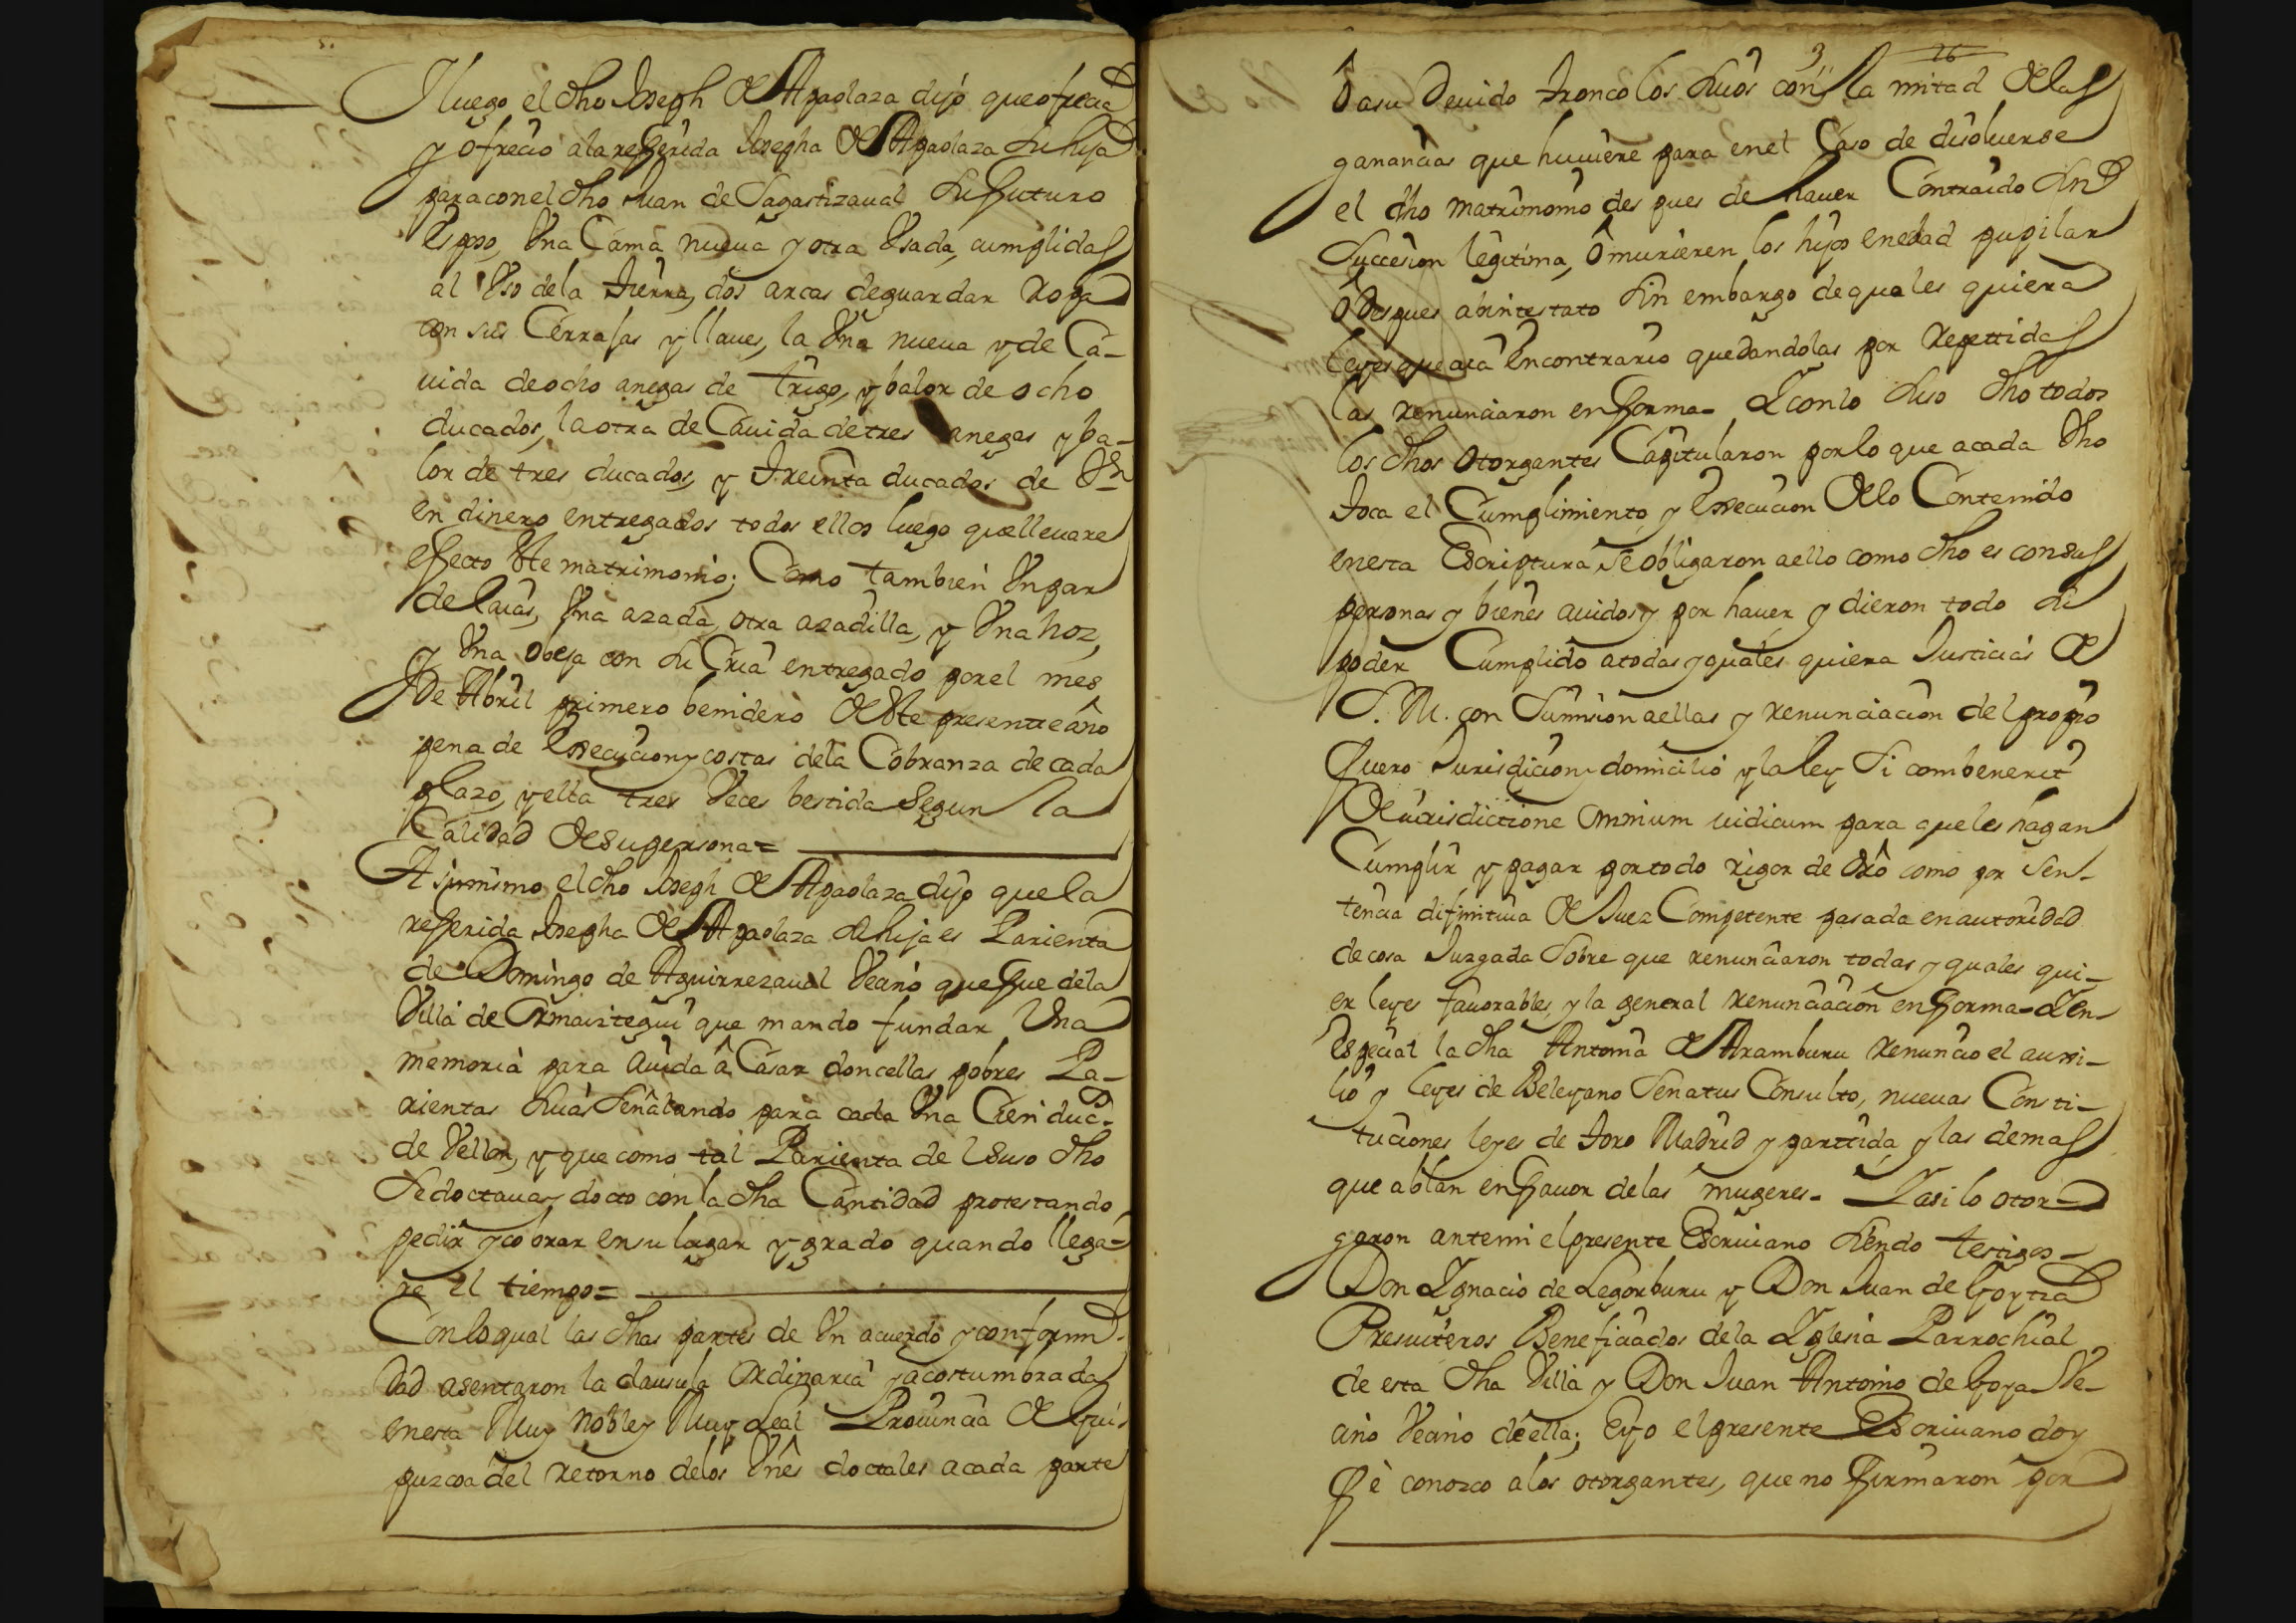 Y luego el dho Joseph de Apaolaza dijo que ofrecia
y ofrecio a la refferida Josepha de Apaolaza su hija
para con el dho Juan de Sagastizaual su futuro
esposo, Una Cama nueua y otra Usada, cumplidas
al Uso de la tierra, dos arcas de guardar ropa
con sus Cerrajas y llaues, la Una nueua y de Ca-
uida de ocho anegas de trigo, y balor de ocho
ducados, la otra de Cauida de tres anegas y ba-
lor de tres ducados, y treinta ducados de Vn
en dinero entregados todos ellos luego que lleuare
effecto este matrimonio; Como tambien Un par
de laias, Una azada, otra azadilla, y Una hoz,
y Una obeja con su Cria entregado por el mes
de Abril primero benidero de este presente año
pena de execucion y costas de la Cobranza de cada
plazo, y ella tres Veces bestida segun la
Calidad de su persona=
Asimismo el dho Joseph de Apaolaza dijo que la
refferida Josepha de Apaolaza su hija es Parienta
de Domingo de Aguirrezaual Vecino que fue de la
Villa de Ormaiztegui que mando fundar Una
memoria para aiuda â Casar doncellas pobres Pa-
rientas suias señalando para cada Una Cien duc.
de Vellon, y que como tal Parienta de el suso dho
se doctaua y docto con la dha Cantidad protestando
pedir y cobrar en su lugar y grado quando llega-
re el tiempo=
Con lo qual las dhas partes de Un acuerdo y conformi-
dad asentaron la clausula ordinaria y acostumbrada
en esta Muy noble y Muy Leal Prouincia de Gui-
puzcoa del retorno de los Vnês doctales a cada parte
3 26
O a su deuido tronco los suios con la mitad de las
ganancias que huuiere para en el Caso de disoluerse
el dho matrimonio despues de hauer Contraido sin
succesion legitima, ô murieren los hijos en edad pupilar
ô despues abintestato sin embargo de quales quiera
leyes que aia en contrario quedandolas por repettidas
las renunciaron en fforma- Y con lo suso dho todos
los dhos otorgantes Capitularon por lo que a cada Uno
toca el Cumplimiento y execucion de lo Contenido
en esta Escriptura se obligaron a ello como dho es con sus
personas y bienes auidos y por hauer y dieron todo su
poder Cumplido a todas y quales quiera Justicias de
S. M. con sumision a ellas y renunciacion del propio
fuero Jurisdicion y domicilio y la ley si combenerit
de iurisdictione omnium iudicum para que les hagan
Cumplir y pagar por todo rigor de drô como por sen-
tencia difinitiua de Juez Competente pasada en autoridad
de cosa Juzgada sobre que renunciaron todas y quales qui-
er leyes fauorables, y la general renunciacion en fforma- Y en
especial la dha Antonia de Aramburu renuncio el auxi-
lio y leyes de Beleyano senatus Consulto, nueuas Consti-
tuciones leyes de toro Madrid y partida y las demas
que ablan en ffauor de las mugeres- Y asi lo otor-
garon ante mi el presente Escriuano siendo testigos-
Don Ygnacio de Legorburu y Don Juan de Goytia
Presuiteros Beneficiados de la Yglesia Parrochial
de esta dha Villa y Don Juan Antonio de Goya Ve-
cino Vecino de ella; E yo el presente Escriuano doy
ffè conozco a los otorgantes, que no ffirmaron por